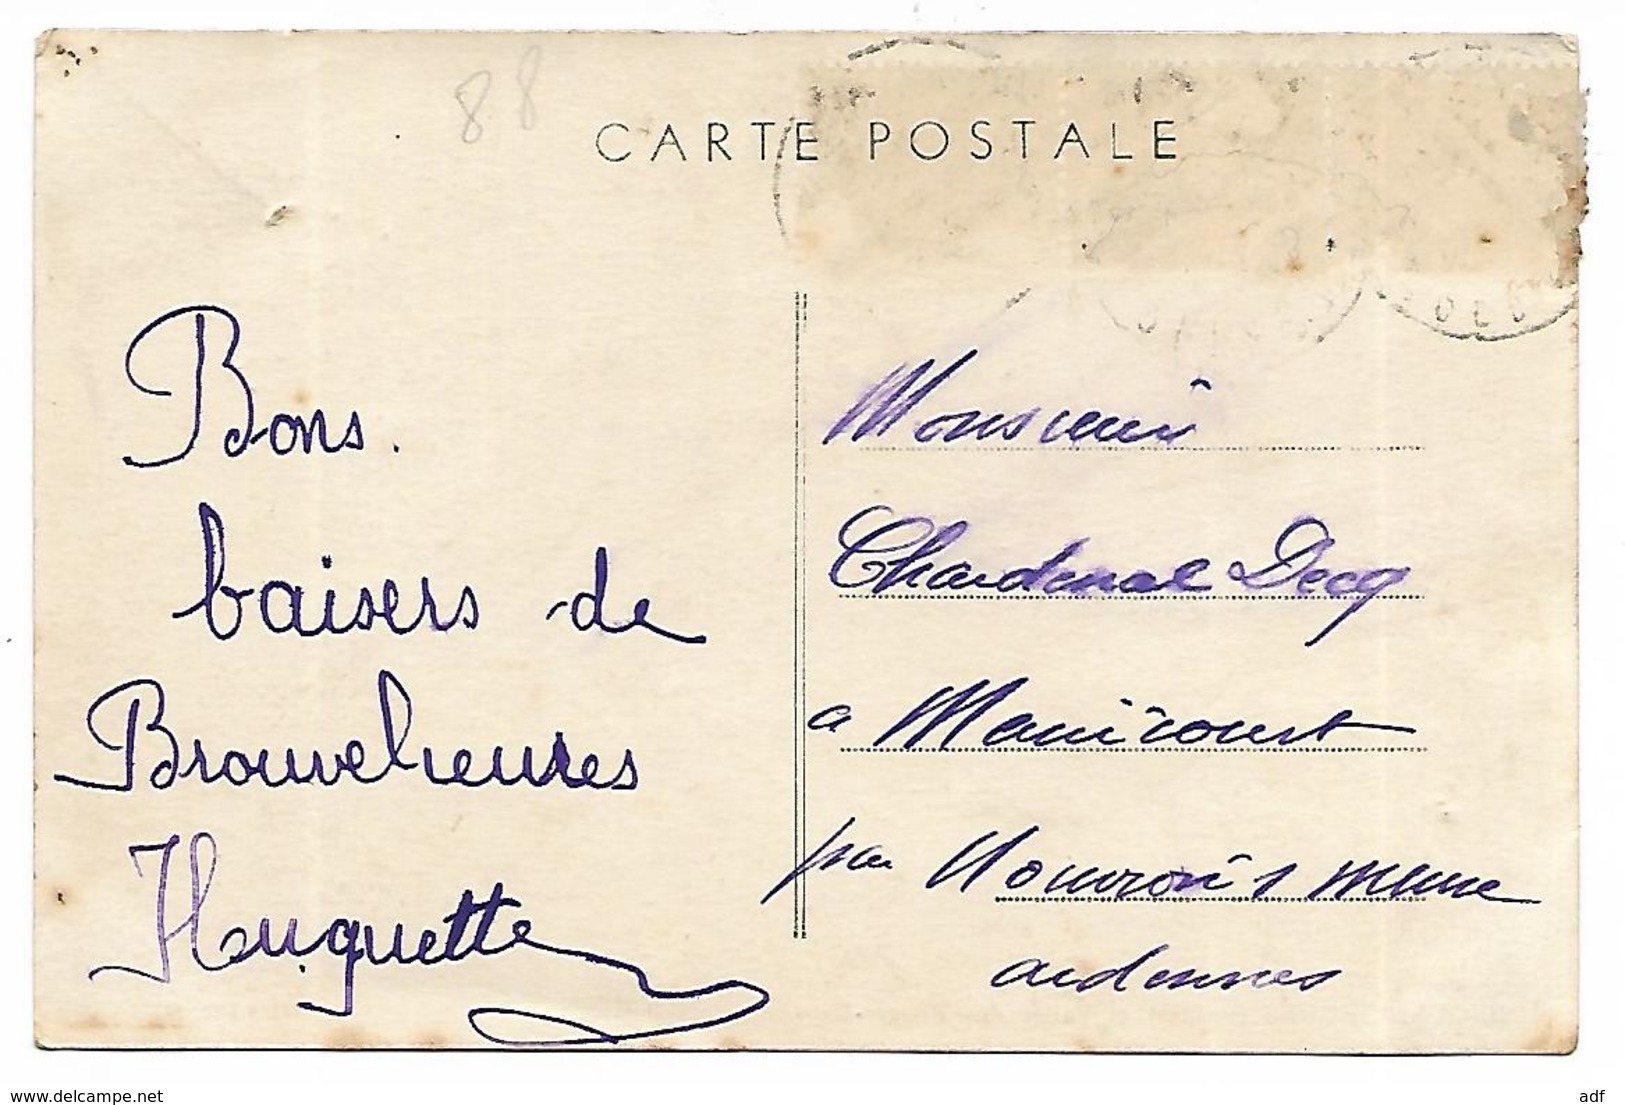 88
CARTE POSTALE
Bons.
baisers de
Brouvelieures
Huguette
Monsieur
Chardenal Decq
a
par Nouvion s meuse
ardennes
www.delcampe.net
adf